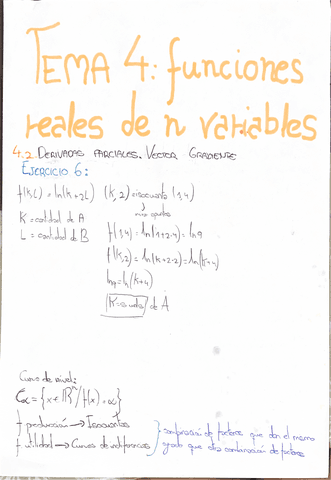 TEMA 4: funciones
reales de n variables
4.2. DERIVADAS PARCIALES. VECTOR GRADIENTE
EJERCICIO 6:
f(K,L) = ln(K+2L) (K,2) = isocuanta (1,4)
K = cantidad de A
L = cantidad de B
f(1,4) = ln(1+2·4) = ln 9
f(K,2) = ln(K+2·2) = ln(K+4)
ln 9 = ln(K+4)
de A
Curvas de nivel:
f producción → Isocuantas
f utilidad → Curvas de indiferencia
combinación de factores que dan el mismo
grado que otra combinación de factores